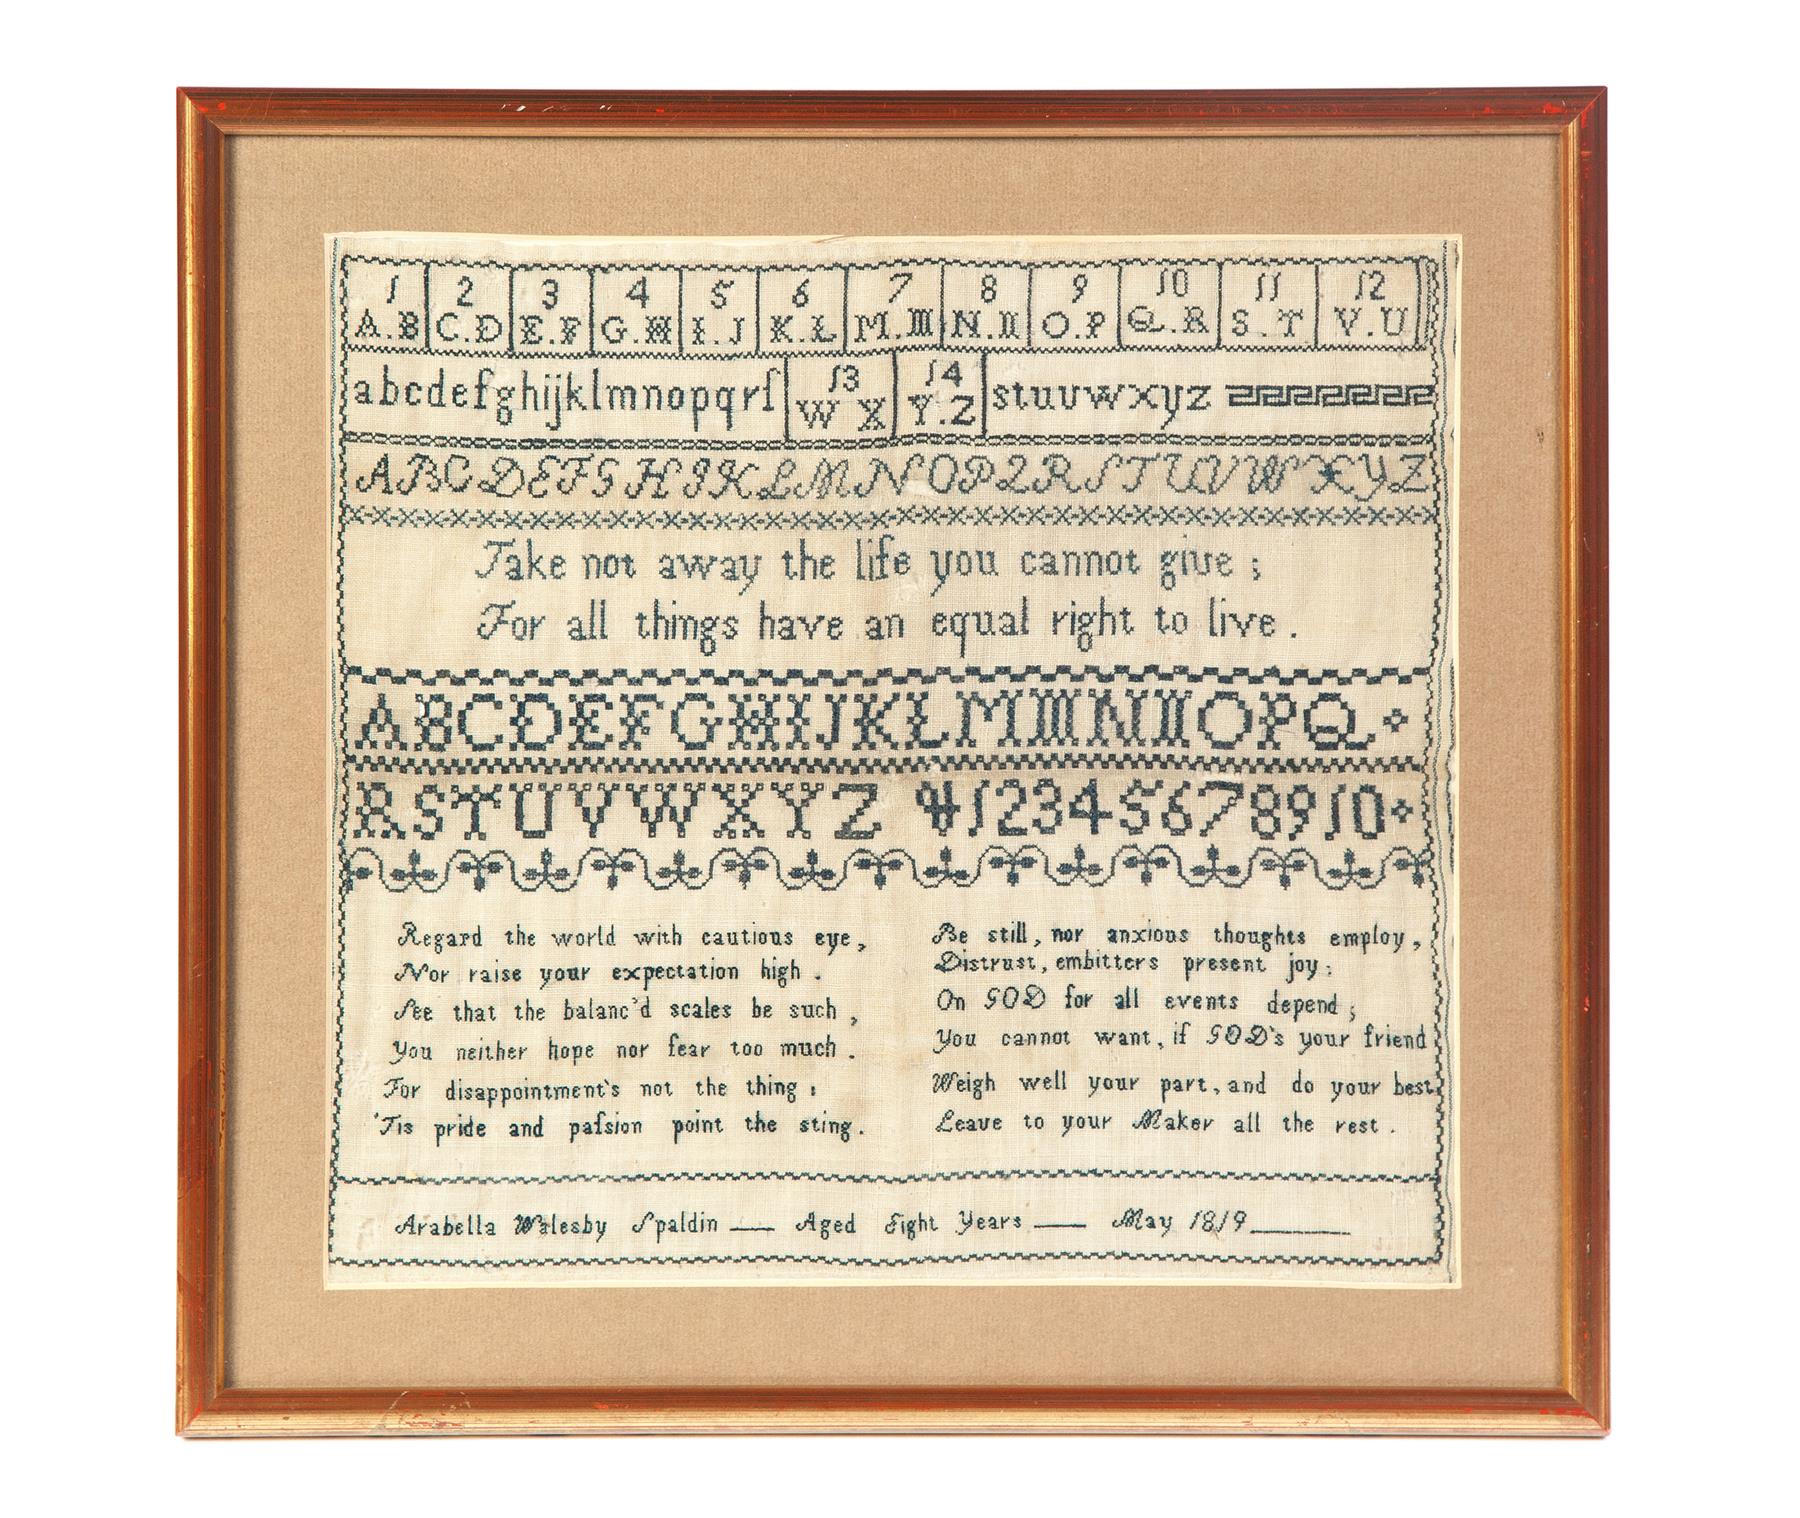 1 2 3 4 5 6 7 8 9 10 11 12
A.B C.D E.F G.H I.J K.L M.M N.N O.P Q.R S.T V.U
abcdefghijklmnopqrſ 13 14 stuvwxyz
W X Y.Z
ABCDEFGHIKLMNOPQRSTUVWXYZ
Take not away the life you cannot give ;
For all things have an equal right to live .
ABCDEFGHIJKLMMNNOPQ
RSTUVWXYZ 12345678910
Regard the world with cautious eye,
Nor raise your expectation high .
See that the balanc'd scales be such ,
You neither hope nor fear too much .
For disappointment's not the thing :
'Tis pride and paſsion point the sting.
Be still, nor anxious thoughts employ,
Distrust, embitters present joy;
On GOD for all events depend;
You cannot want, if GOD's your friend
Weigh well your part, and do your best
Leave to your Maker all the rest .
Arabella Walesby Spaldin — Aged Eight Years — May 1819